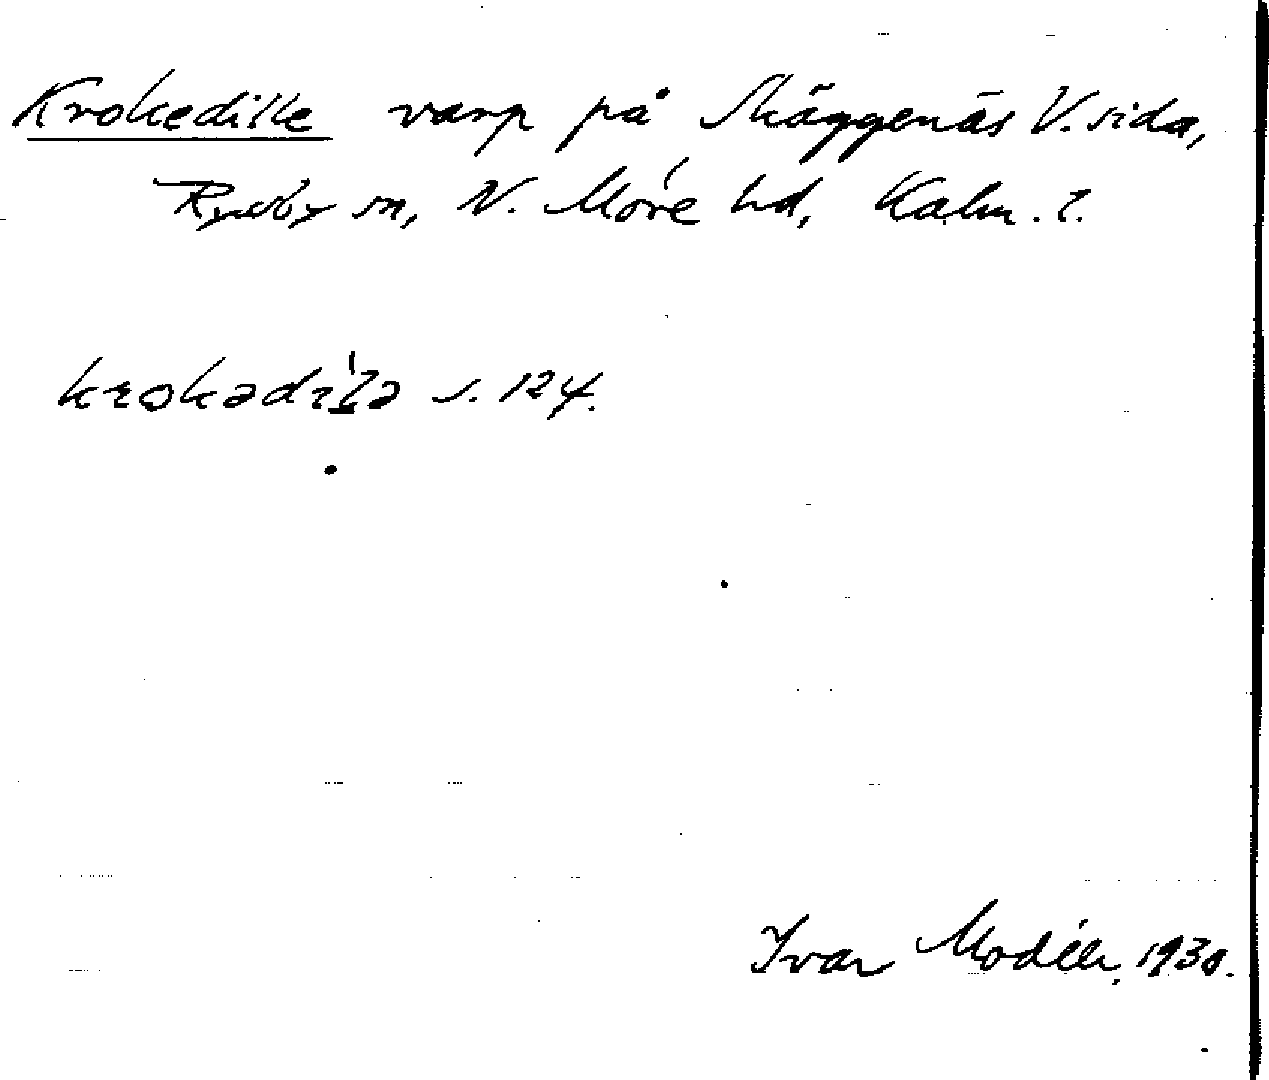 Krokedille varp på Skäggenäs V. sida,
Ryssby sn, N. Möre hd, Kalm. l.
krokadi̱lla s. 124.
Ivar Modéer, 1930.